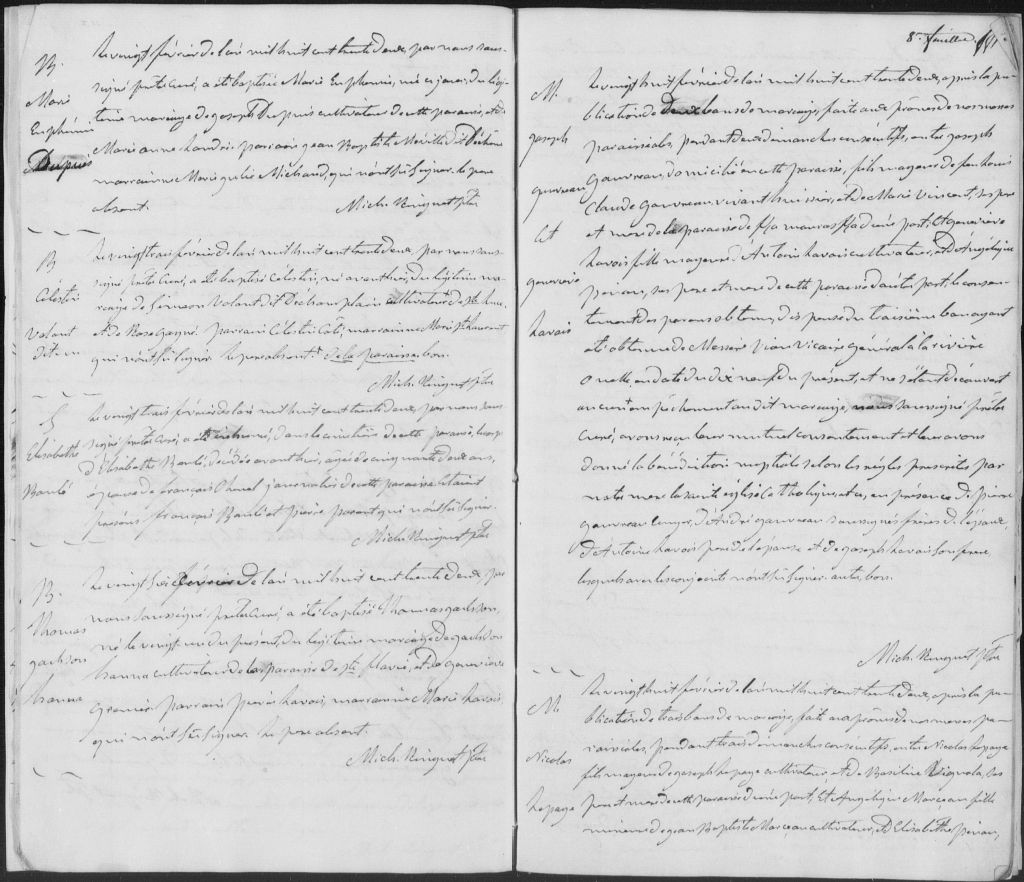 B.
Marie
Euphémie
Dupuis
Le vingt février de lan mil huit cent trente deux, par nous sous-
signé prêtre curé, a été baptisé Marie Euphemie, né ce jour, du légi-
time mariage de joseph Dupuis cultivateur de cette paroisse, et de
Marie anne Landri. parrain jean Baptiste
marrainne Marie julie Michaud, qui n'ont sû signer. le pere
absent. Mich. Ringuet ptre
B
Célestin
Volant
Le vingt trois février de lan mil huit cent trente deux, par nous sous
signé prêtre curé, a été baptisé Célestin, né avant hier, du légitime ma-
riage de Simeon Volant dit Dechamplain cultivateur de ste Luce
et de Rose gagné. parrain Célestin Coté, marrainne Marie St Laurent
qui n'ont sû signer le pere absent. de la paroisse bon.
Mich. Ringuet ptre
S
Elisabethe
Banlé
Le vingt trois février de lan mil huit cent trente deux, par nous sous
signé prêtre curé, a été inhumé, dans le cimetière de cette paroisse, le corps
d'Elisabethe Banlé, décédée avant hier, agée de cinquante deux ans,
épouse de françois journalier de cette paroisse etaient
présens françois Banlé et pierre parent qui n'ont sû signer.
Mich. Ringuet ptre
B.
Thomas
jackson
hanna
Le vingt six février de lan mil huit cent trente deux, par
nous soussigné prêtre curé, a été baptisé Thomas jackson,
né le vingt un du présent, du légitime mariage de jackson
hanna cultivateur de la paroisse de ste flavie, et de genevieve
grenier parrain pierre Lavois, marrainne Marie Lavois,
qui n'ont sû signer. Le pere absent.
Mich. Ringuet ptre
8e. feuillet
M.
joseph
gauvreau
Et
genevieve
Lavois
Le vingt huit février de lan mil huit cent trente deux, après la pu-
blication de deux bans de mariage, faite aux prônes de nos messes
paroissiales, pendant deux dimanches consécutifs, entre joseph
Gauvreau, domicilié en cette paroisse, fils majeur de feu
Claude Gauvreau, vivant huissier, et de Marie Vincent, ses pere
et mere de la paroisse de d'une part; Et genevieve
Lavois fille majeure d'Antoine Lavois cultivateur, et d'Angélique
ses pere et mere de cette paroisse d'autre part, le consen-
tement des parens obtenu, dispense du troisième ban ayant
été obtenue de Messire Viau Vicaire général à la rivière
Ouelle, en date du dix neuf du présent, et ne s'étant découvert
aucun empêchement au dit mariage, nous soussigné prêtre
curé, avons reçu leur mutuel consentement et leur avons
donné la bénédiction nuptiale selon les règles prescrites par
notre mere la sainte église Catholique, etc., en présence de pierre
gauvreau d'André gauvreau soussignés frères de l'époux,
d'Antoine Lavois pere de l'épouse et de joseph Lavois son frere,
lesquels avec les conjoints n'ont sû signer.
Mich. Ringuet ptre
M.
Nicolas
Lepage
Le vingt huit février de lan mil huit cent trente deux, après la pu-
blication de trois bans de mariage, faite aux prônes de nos messes pa-
roissiales, pendant trois dimanches consécutifs, entre Nicolas Lepage
fils majeur de joseph Lepage cultivateur, et de Basilisse Vignola, ses
pere et mere de cette paroisse d'une part; Et Angélique Marceau fille
mineure de jean Baptiste Marceau cultivateur, et d'Elisabethe